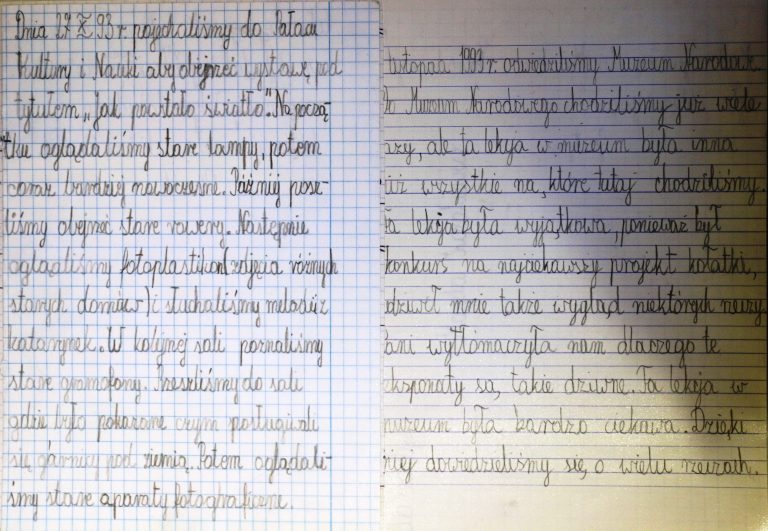 Dnia 27 X 93 r. pojechaliśmy do Pałacu
Kultury i Nauki aby obejrzeć wystawę pod
tytułem „Jak powstało światło". Na począ
tku oglądaliśmy stare lampy, potem
coraz bardziej nowoczesne. Później posz-
liśmy obejrzeć stare rowery. Następnie
oglądaliśmy fotoplastikon (zdjęcia różnych
starych domów) i słuchaliśmy melodii z
katarynek. W kolejnej sali poznaliśmy
stare gramofony. Przeszliśmy do sali
gdzie było pokazane czym posługiwali
się górnicy pod ziemią. Potem oglądali-
śmy stare aparaty fotograficzne.
listopada 1993 r. odwiedziliśmy Muzeum Narodow
Do Muzeum Narodowego chodziliśmy już wiele
azy, ale ta lekcja w muzeum była inna
iż wszystkie na, które tutaj chodziliśmy.
Ta lekcja była wyjątkowa, ponieważ był
konkurs na najciekawszy projekt kołatki,
dziwił mnie także wygląd niektórych rzeczy.
Pani wytłomaczyła nam dlaczego te
eksponaty są, takie dziwne. Ta lekcja w
muzeum była bardzo ciekawa. Dzięki
niej dowiedzieliśmy się, o wielu rzeczach.